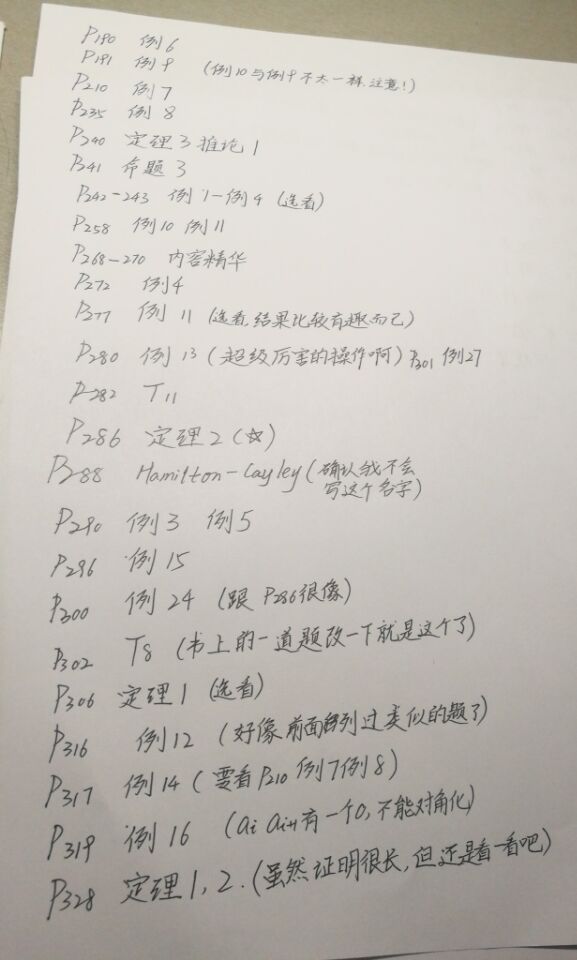 P190 例6
P191 例9 (例10与例9不太一样,注意!)
P210 例7
P235 例8
P240 定理3 推论1
P241 命题3
P242-243 例1-例4 (选看)
P258 例10 例11
P268-270 内容精华
P272 例4
P277 例11 (选看,结果比较有趣而已)
P280 例13 (超级厉害的操作啊) P301 例27
P282 T11
P286 定理2 (☆)
P288 Hamilton-Cayley (确认我不会
写这个名字)
P290 例3 例5
P296 例15
P300 例24 (跟P286很像)
P302 T8 (书上的一道题改一下就是这个了)
P306 定理1 (选看)
P316 例12 (好像前面列过类似的题了)
P317 例14 (要看P210 例7例8)
P319 例16 (ai ai+1有一个0,不能对角化)
P328 定理1,2. (虽然证明很长,但还是看一看吧)